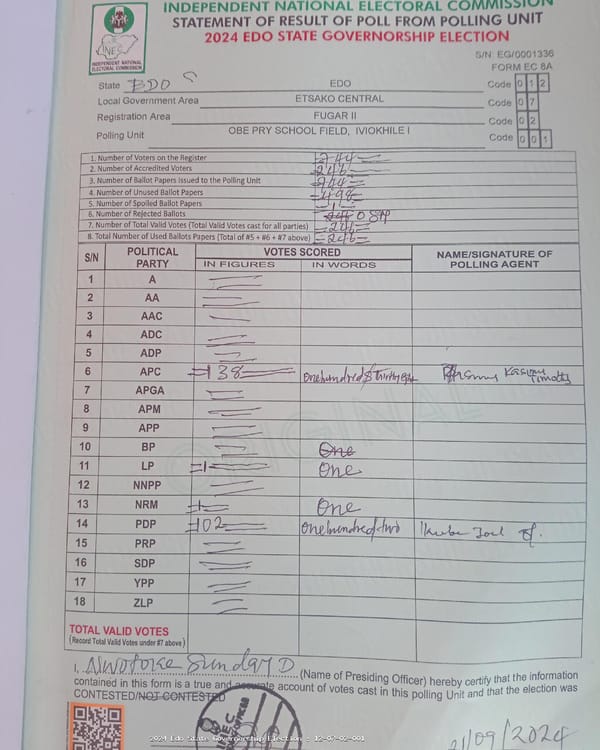 INDEPENDENT NATIONAL ELECTORAL COMMISSION
STATEMENT OF RESULT OF POLL FROM POLLING UNIT
2024 EDO STATE GOVERNORSHIP ELECTION
INEC
INDEPENDENT NATIONAL
ELECTORAL COMMISSION
S/N: EG/0001336
FORM EC 8A
State EDO EDO Code 0 1 2
Local Government Area ETSAKO CENTRAL Code 0 7
Registration Area FUGAR II Code 0 2
Polling Unit OBE PRY SCHOOL FIELD, IVIOKHILE I Code 0 0 1
1. Number of Voters on the Register =744=
2. Number of Accredited Voters =246=
3. Number of Ballot Papers Issued to the Polling Unit =744=
4. Number of Unused Ballot Papers =498=
5. Number of Spoiled Ballot Papers
6. Number of Rejected Ballots
7. Number of Total Valid Votes (Total Valid Votes cast for all parties)
8. Total Number of Used Ballots Papers (Total of #5 + #6 + #7 above) =246=
S/N POLITICAL PARTY VOTES SCORED NAME/SIGNATURE OF POLLING AGENT
IN FIGURES IN WORDS
1 A
2 AA
3 AAC
4 ADC
5 ADP
6 APC =138= One hundred & thirty Eight Kasimu Timothy
7 APGA
8 APM
9 APP
10 BP One
11 LP =1= One
12 NNPP
13 NRM =1= One
14 PDP =102= One hundred & two
15 PRP
16 SDP
17 YPP
18 ZLP
TOTAL VALID VOTES
(Record Total Valid Votes under #7 above)
I, Nwoforke Sunday D (Name of Presiding Officer) hereby certify that the information
contained in this form is a true and accurate account of votes cast in this polling Unit and that the election was
CONTESTED/NOT CONTESTED
21/09/2024
2024 Edo State Governorship Election - 12-07-02-001
ORIGINAL